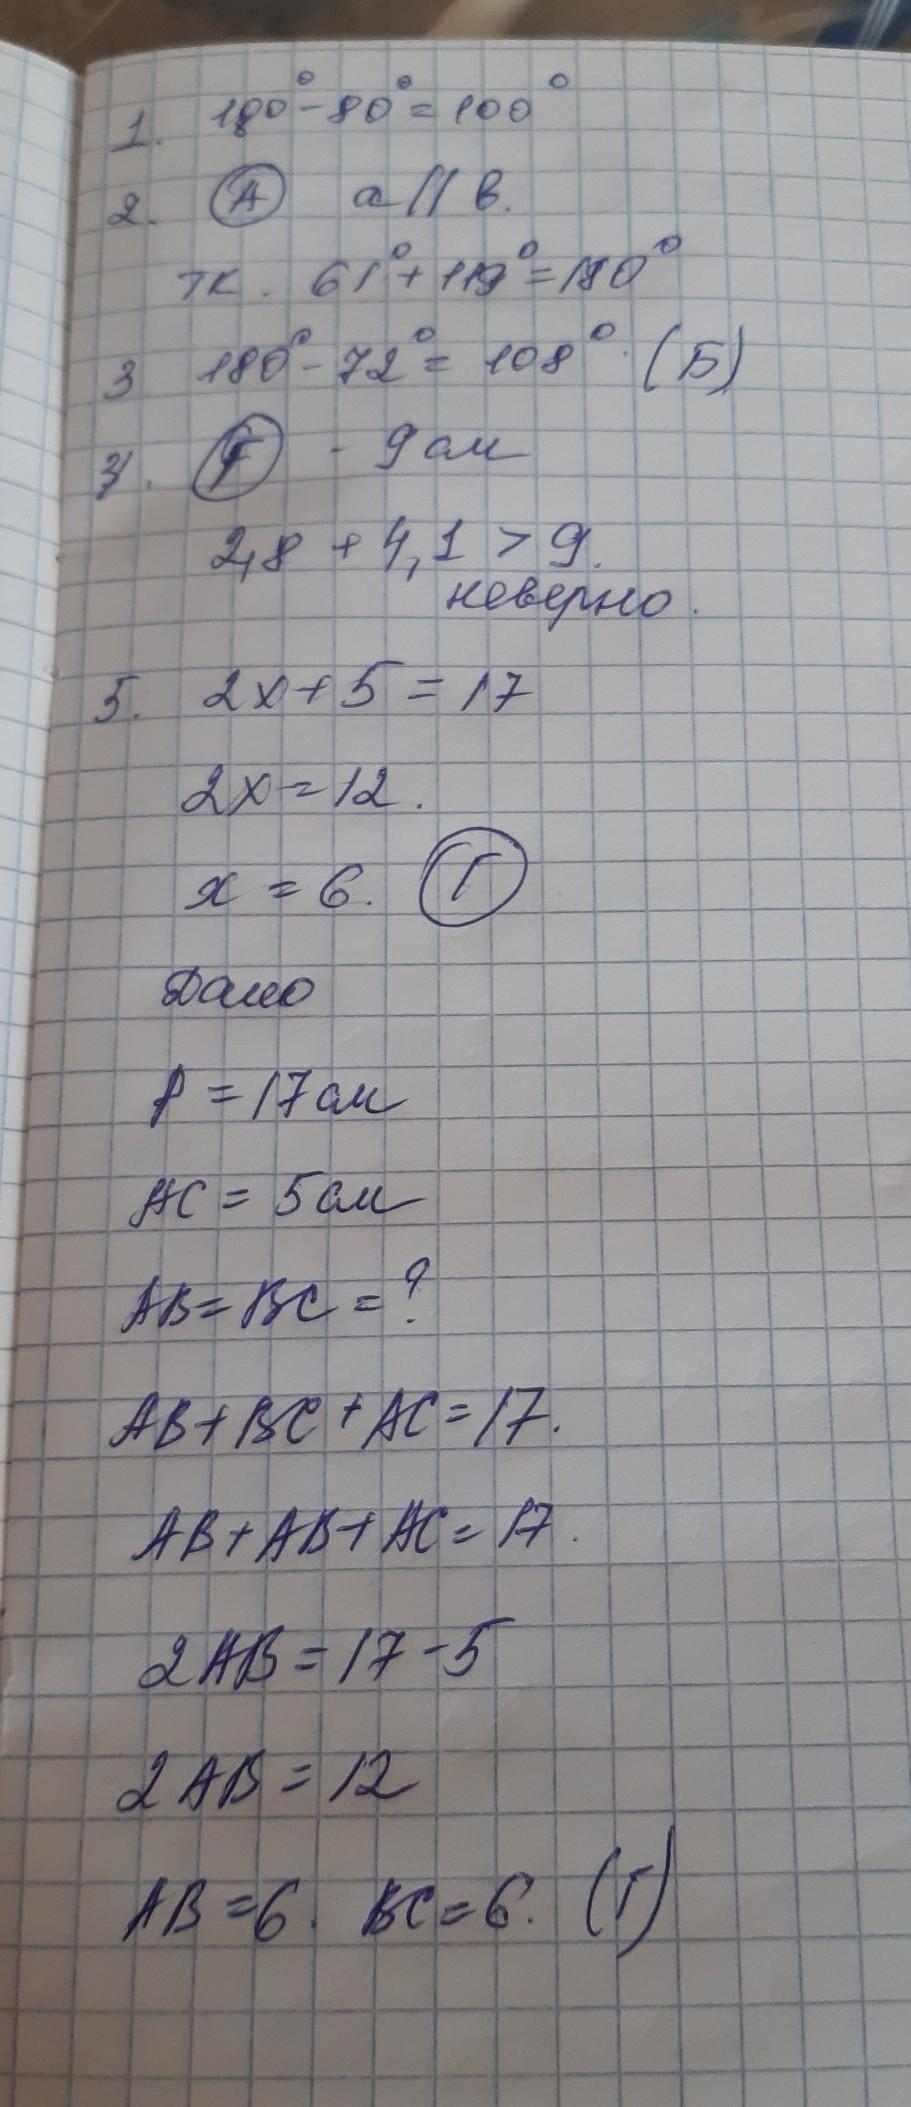 1. 180° - 80° = 100°
2. А a || в.
тк. 61° + 119° = 180°
3 180° - 72° = 108°. (Б)
4. Г - 9 см
2,8 + 4,1 > 9.
неверно.
5. 2x + 5 = 17
2x = 12.
x = 6. Г
Дано
P = 17 см
AC = 5 см
AB = BC = ?
AB + BC + AC = 17.
AB + AB + AC = 17.
2AB = 17 - 5
2AB = 12
AB = 6. BC = 6. (Г)